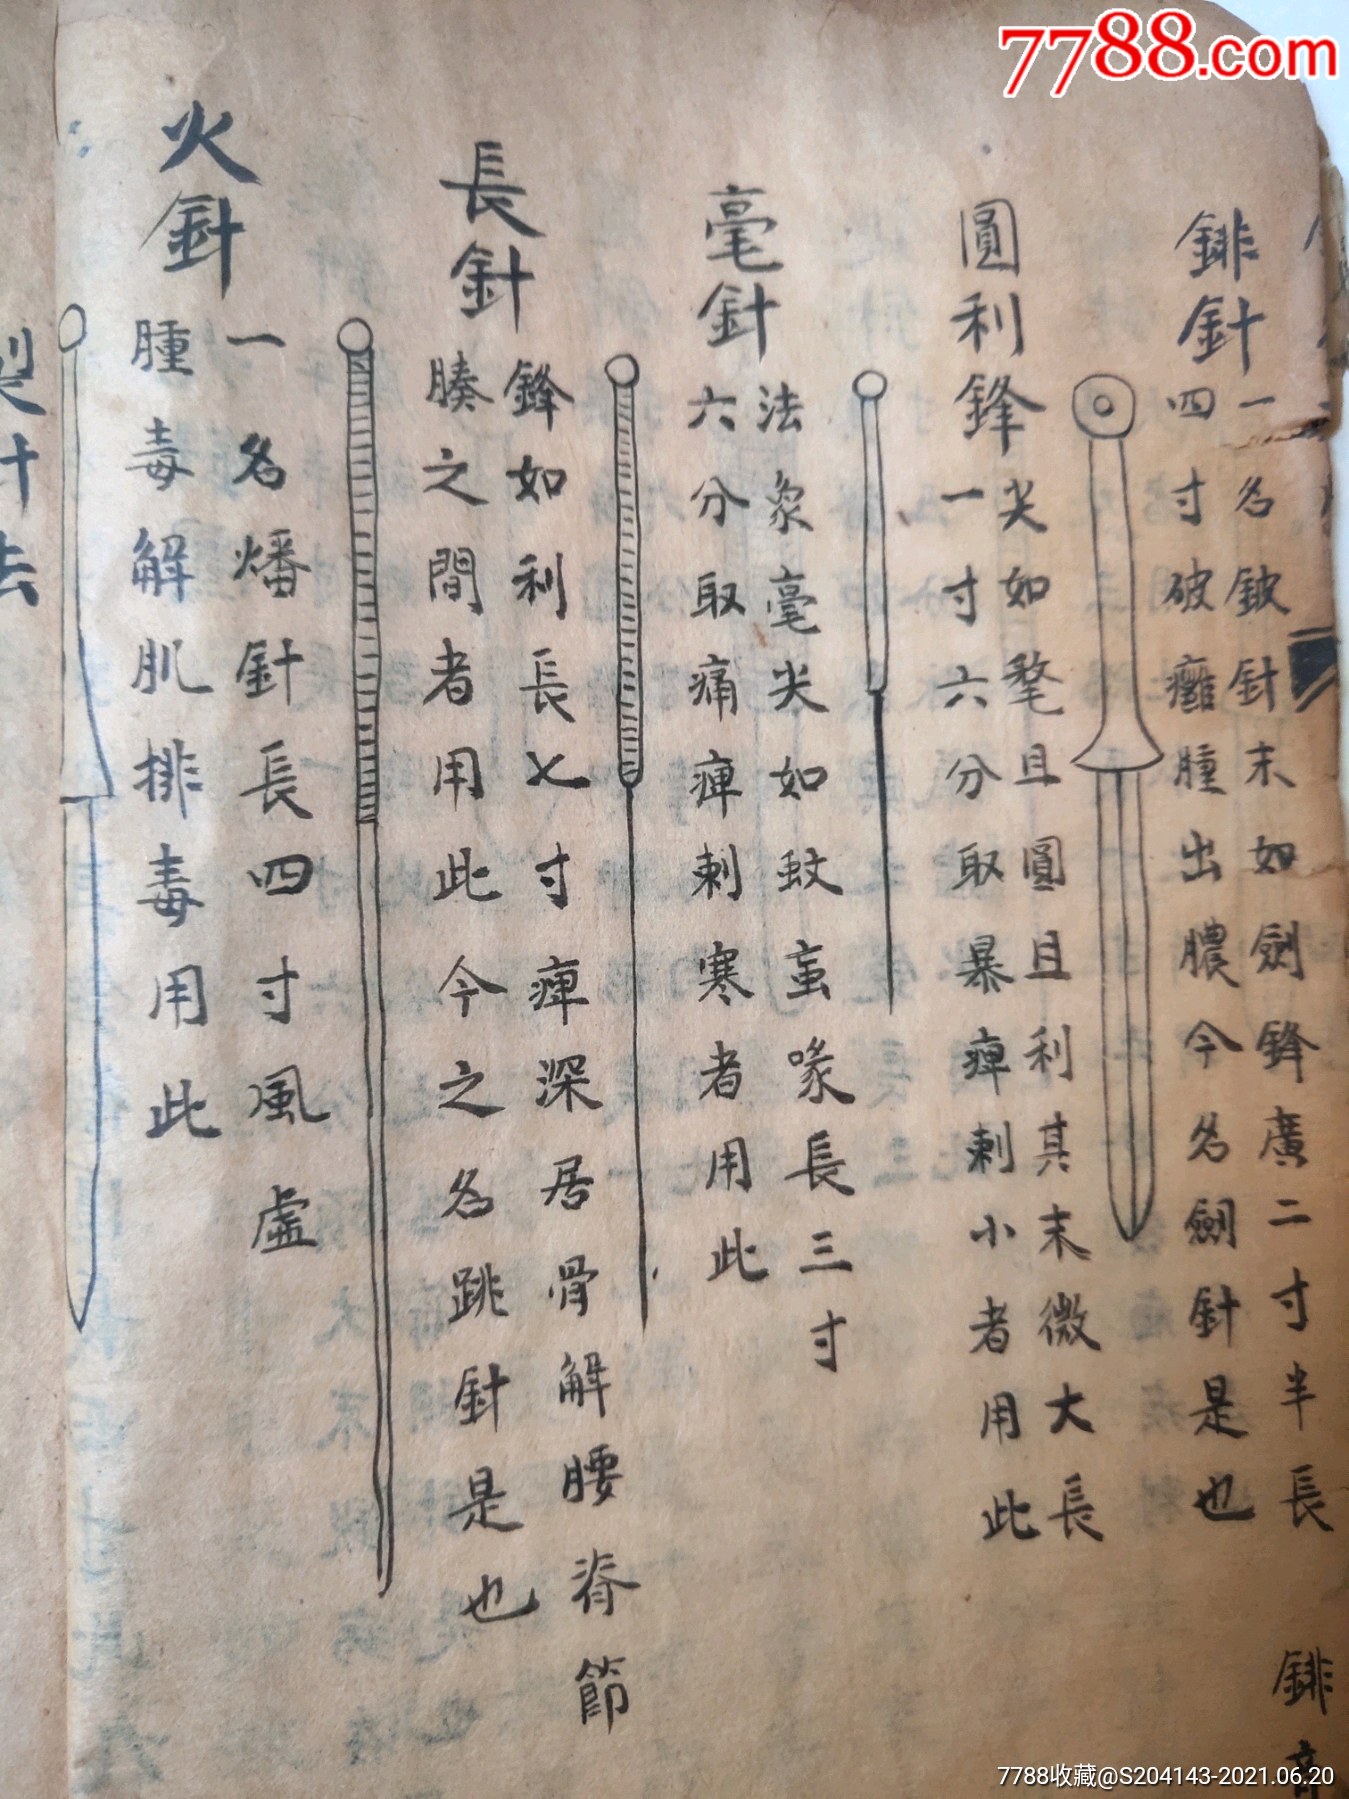 7788.com
錍針
一名鈹針末如劍鋒廣二寸半長
四寸破癰腫出膿今名劍針是也
錍音
圓利鋒
尖如氂且圓且利其末微大長
一寸六分取暴痺刺小者用此
毫針
法象毫尖如蚊虻喙長三寸
六分取痛痺刺寒者用此
長針
鋒如利長七寸痺深居骨解腰脊節
腠之間者用此今之名跳針是也
火針
一名燔針長四寸風虛
腫毒解肌排毒用此
製針法
7788收藏@S204143-2021.06.20